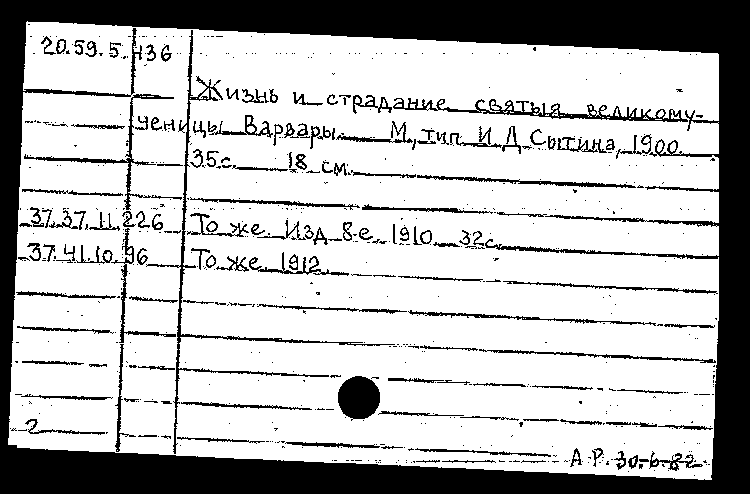 20.59.5.436
Жизнь и страдание святыя великому-
ченицы Варвары. М., тип. И.Д. Сытина, 1900.
35с. 18 см.
37.37.11.226 То же. Изд. 8-е. 1910. 32с.
37.41.10.96 То же. 1912.
2
А.Р. 30-6-82